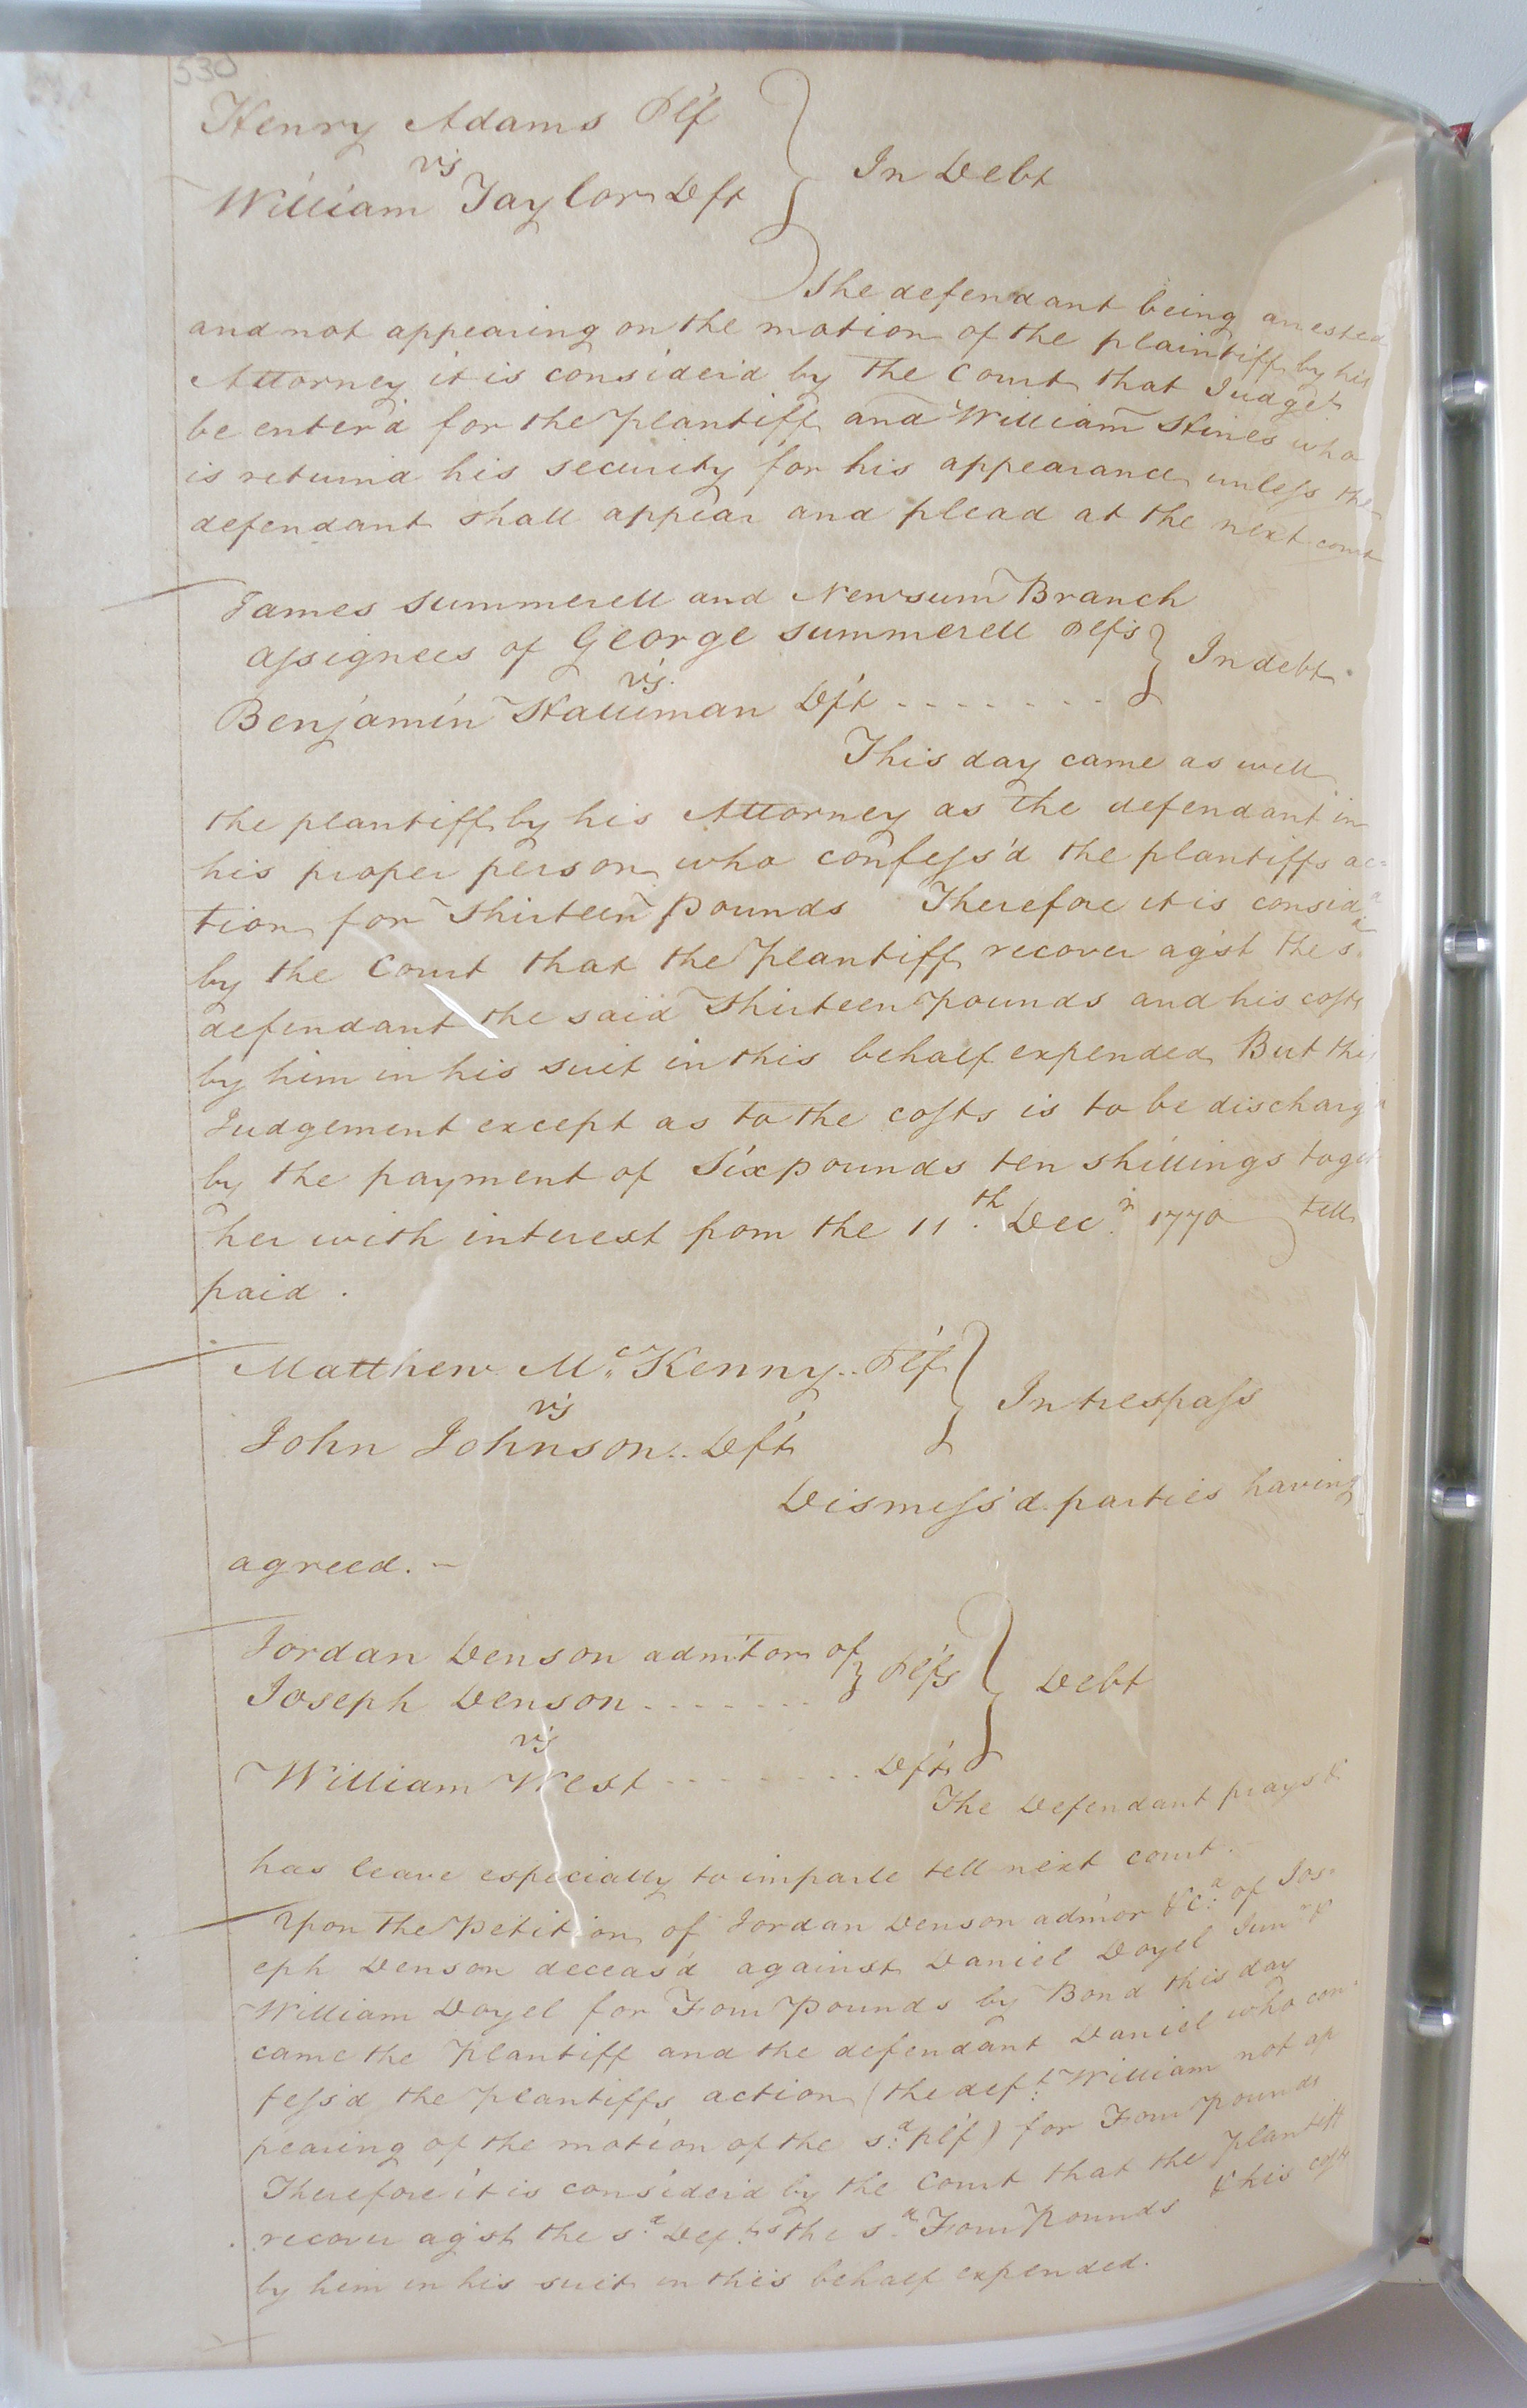 530
Henry Adams Plf
vs
William Taylor Dft } In Debt
The defendant being arrested
and not appearing on the motion of the plaintiff by his
Attorney it is consider'd by the Court that Judgt
be enter'd for the plantiff and William Hines who
is return'd his security for his appearance unless the
defendant shall appear and plead at the next court
James Summerell and Newsum Branch
assignees of George Summerell Plfs } In debt
vs.
Benjamin Stallman Dft - - - - - - - -
This day came as well
the plantiff by his Attorney as the defendant in
his proper person who confess'd the plantiffs ac=
tion for Thirteen Pounds Therefore it is consid.d
by the Court that the Plantiff recover ag'st the s.d
defendant the said Thirteen Pounds and his costs
by him in his suit in this behalf expended But this
Judgement except as to the costs is to be discharg'd
by the payment of Six pounds ten shillings toget
her with interest from the 11.th Dec.r 1770 tell
paid.
Matthew Mc.Kenny.. Plf } In trespass
vs
John Johnson.. Dft
Dismess'd parties having
agreed. -
Jordan Denson admitor of } Plfs } Debt
Joseph Denson - - - - - - -
vs
William West - - - - - - - - Dft
The Defendant prays &
has leave especially to imparle tell next court.
Upon the Petition of Jordan Denson admor &c.a of Jos=
eph Denson deceas'd against Daniel Doyel Jun.r &
William Doyel for Four Pounds by Bond this day
came the Plantiff and the defendant Daniel who con
fess'd the Plantiffs action (the def.t William not ap
pearing of the motion of the s.d plf) for Four Pounds
Therefore it is consider'd by the Court that the Plantiff
recover ag'st the s.d Def.ts the s.d Four Pounds & his costs
by him in his suit in this behalf expended.